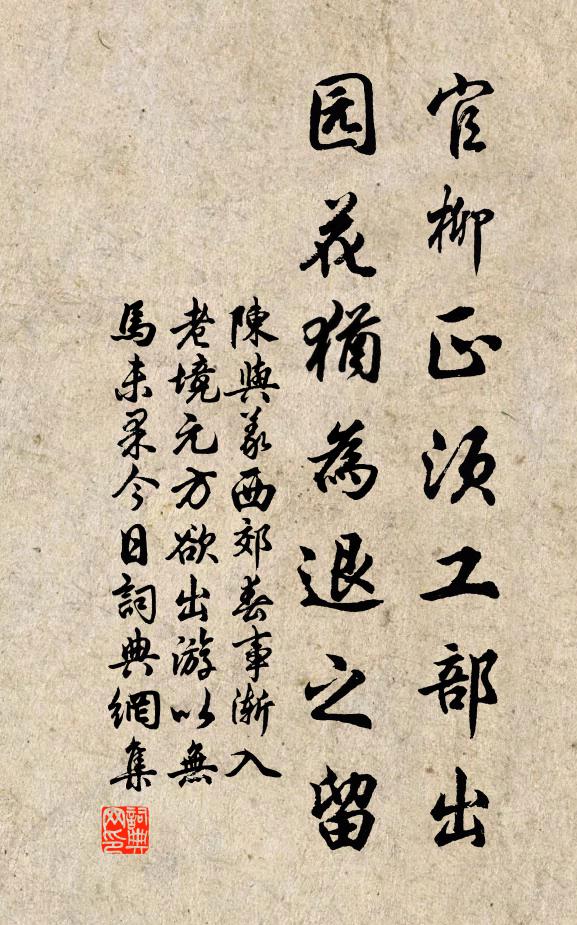 官柳正须工部出
园花犹為退之留
陳與義西郊春事漸入
老境元方欲出游以無
馬未果今日詞典網集
詞典网印